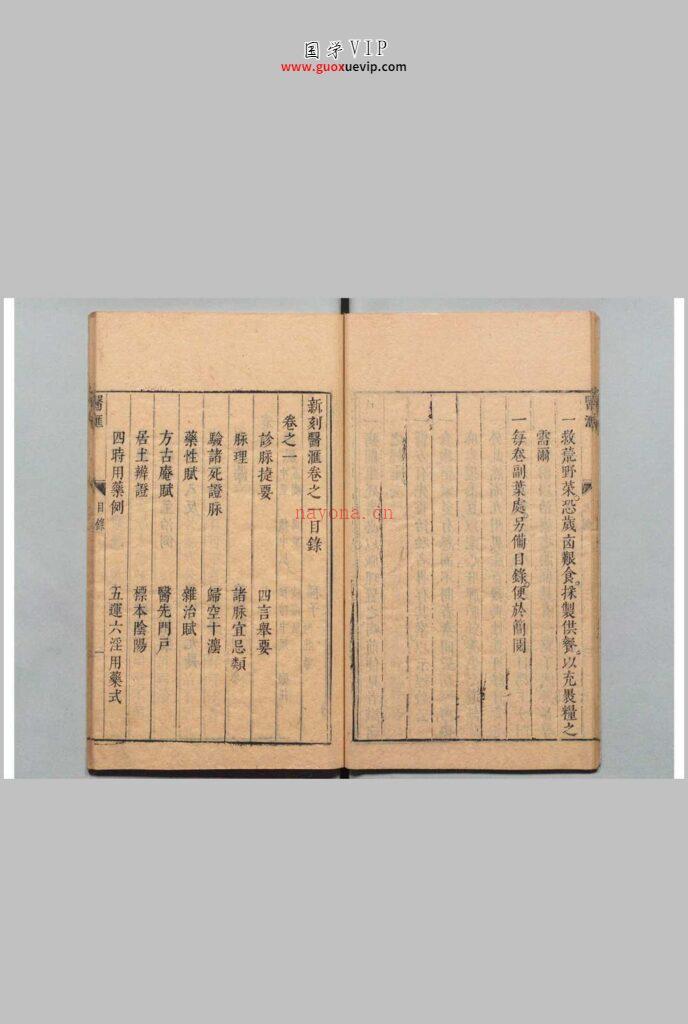 国学VIP
www.guoxuevip.com
醫滙
一救荒野菜。恐歲凾艱食。採製供餐。以充裹糧之
需爾
一每卷副葉處。另備目錄。便於簡閱
新刻醫滙卷之 目錄
卷之一
診脉捷要 四言舉要
脉理 諸脉宜忌類
驗諸死證脉 歸空十瀽
藥性賦 雜治賦
方古庵賦 醫先門戸
居士辨證 標本陰陽
四時用藥例 五運六淫用藥式
醫滙
目錄
一
nayona.cn